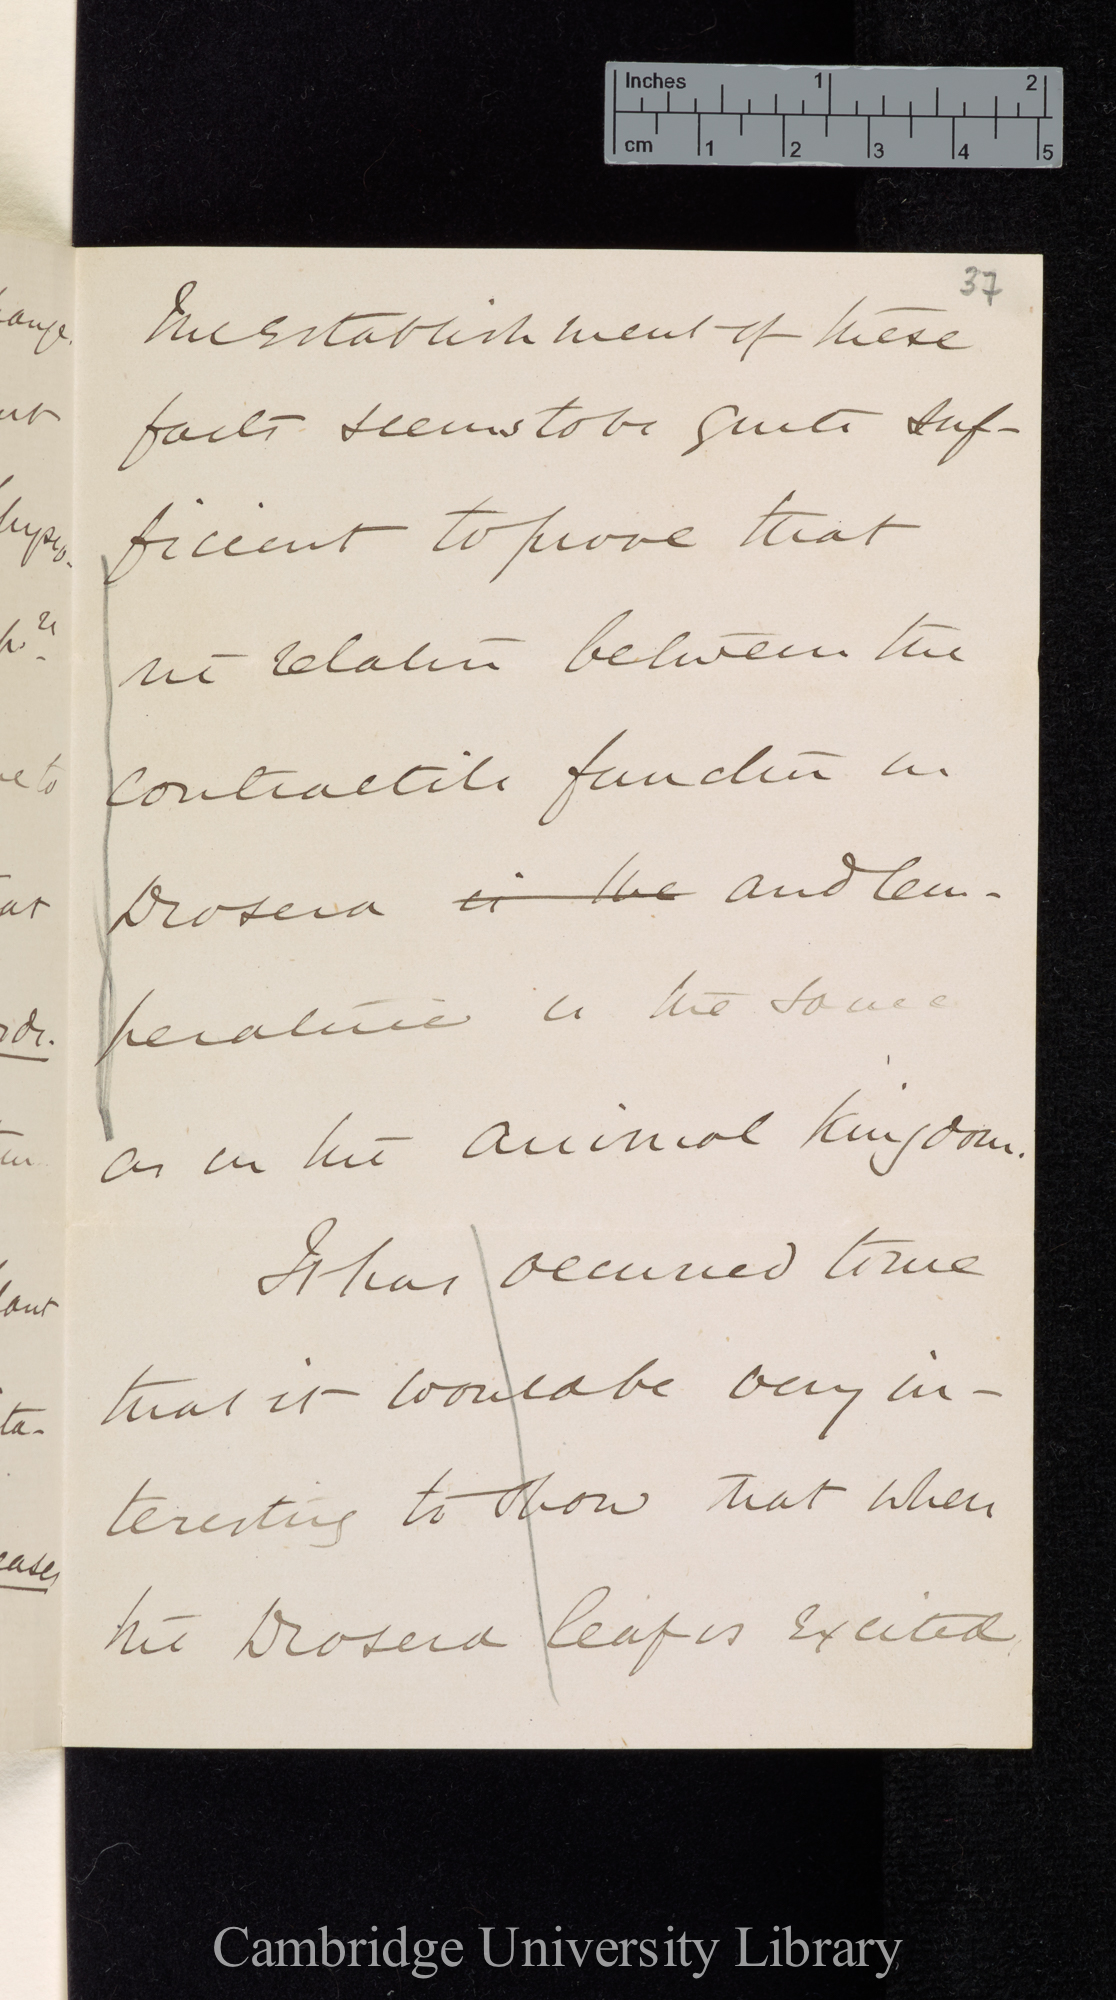 Inches 1 2
cm 1 2 3 4 5
37
The establishment of these
facts seems to be quite suf-
ficient to prove that
the relation between the
contractile function in
Drosera is the and tem-
perature is the same
as in the animal kingdom.
It has occurred to me
that it would be very in-
teresting to show that when
the Drosera leaf is excited
Cambridge University Library